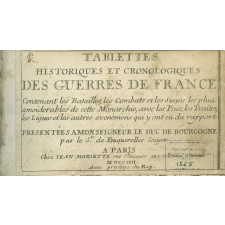 TABLETTES
HISTORIQUES ET CRONOLOGIQUES
DES GUERRES DE FRANCE
Contenant les Batailles, les Combats et les Sieges les plus
considerables de cette Monarchie, avec les Paix, les Traitez,
les Ligues et les autres evenemens qui y ont eu du rapport
PRESENTÉES A MONSEIGNEUR LE DUC DE BOURGOGNE
par le Sr. de Fauquerelles
A PARIS
Chez JEAN MARIETTE rue
Avec privilege du Roy
1565